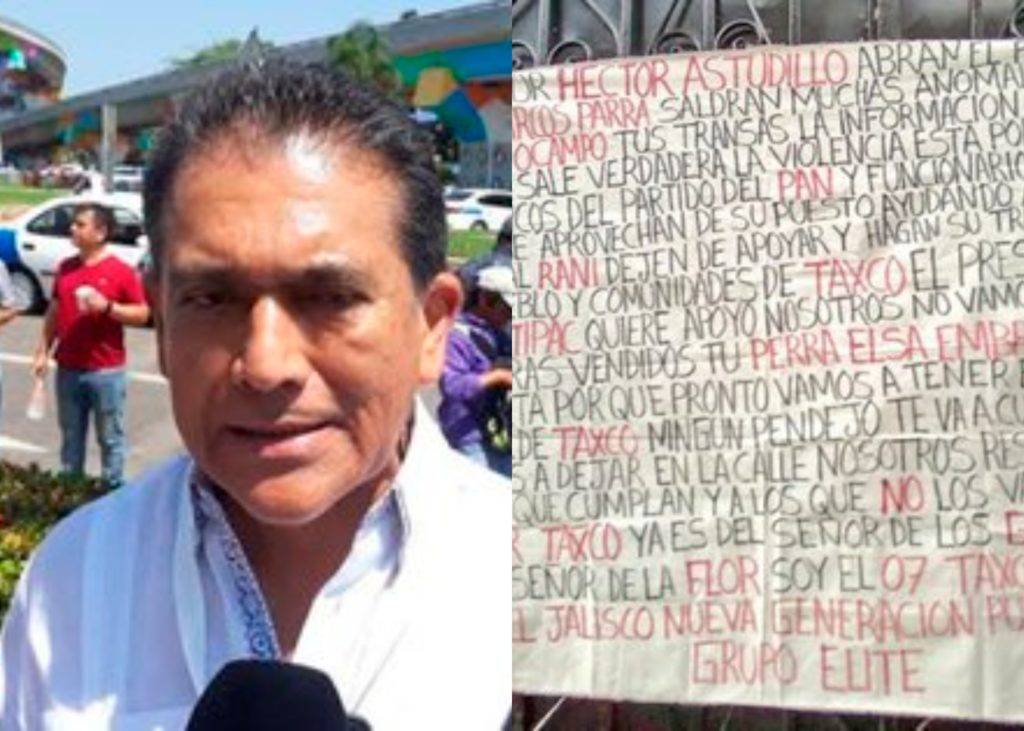 OR HECTOR ASTUDILLO ABRAN EL
RCOS PARRA SALDRAN MUCHAS ANOMA
OCAMPO TUS TRANSAS LA INFORMACION
SALE VERDADERA LA VIOLENCIA ESTA PO
COS DEL PARTIDO DEL PAN Y FUNCIONARIO
E APROVECHAN DE SU PUESTO AYUDANDO
L RANI DEJEN DE APOYAR Y HAGAN SU TR
BLO Y COMUNIDADES DE TAXCO EL PRES
TIPAC QUIERE APOYO NOSOTROS NO VAMO
RAS VENDIDOS TU PERRA ELSA EMB
TA POR QUE PRONTO VAMOS A TENER
DE TAXCO MINGUN PENDEJO TE VA A CU
S A DEJAR EN LA CALLE NOSOTROS RES
QUE CUMPLAN Y A LOS QUE NO LOS V
R TAXCO YA ES DEL SEÑOR DE LOS
SEÑOR DE LA FLOR SOY EL 07 TAXC
L JALISCO NUEVA GENERACION PU
GRUPO ELITE